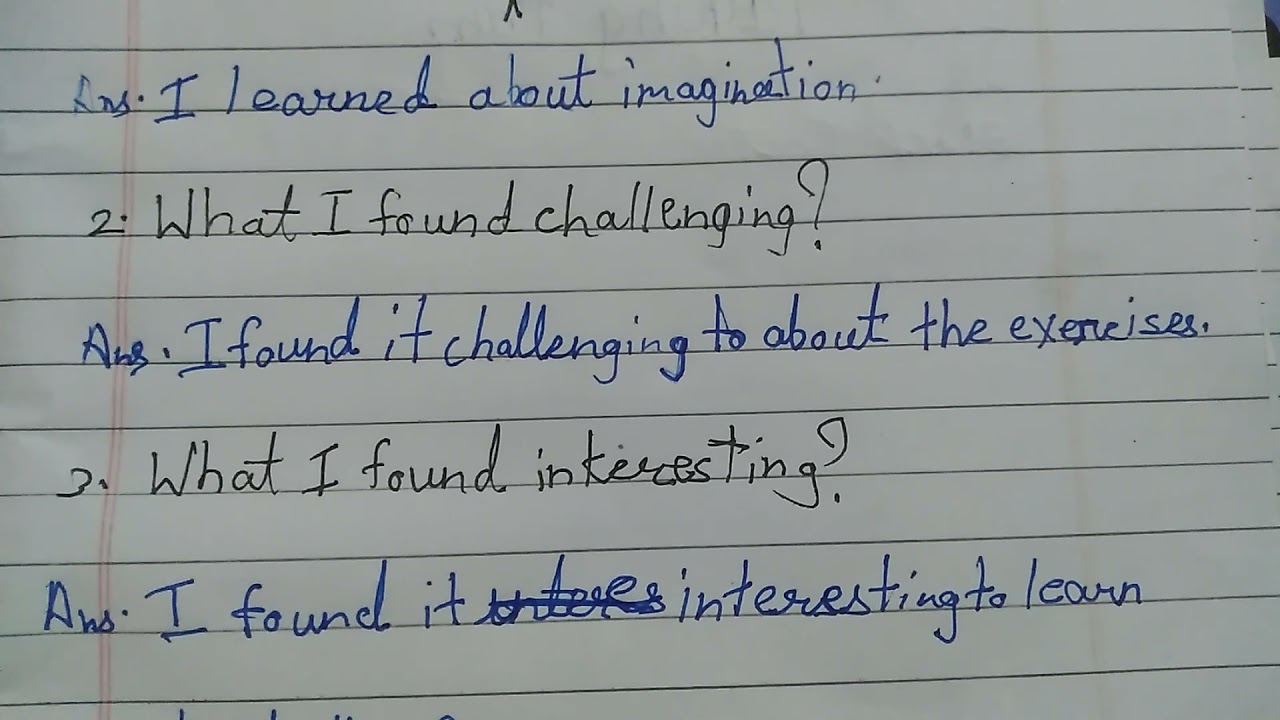 Ans. I learned about imagination.
2. What I found challenging?
Ans. I found it challenging to about the exercises.
3. What I found interesting?
Ans. I found it interesting to learn